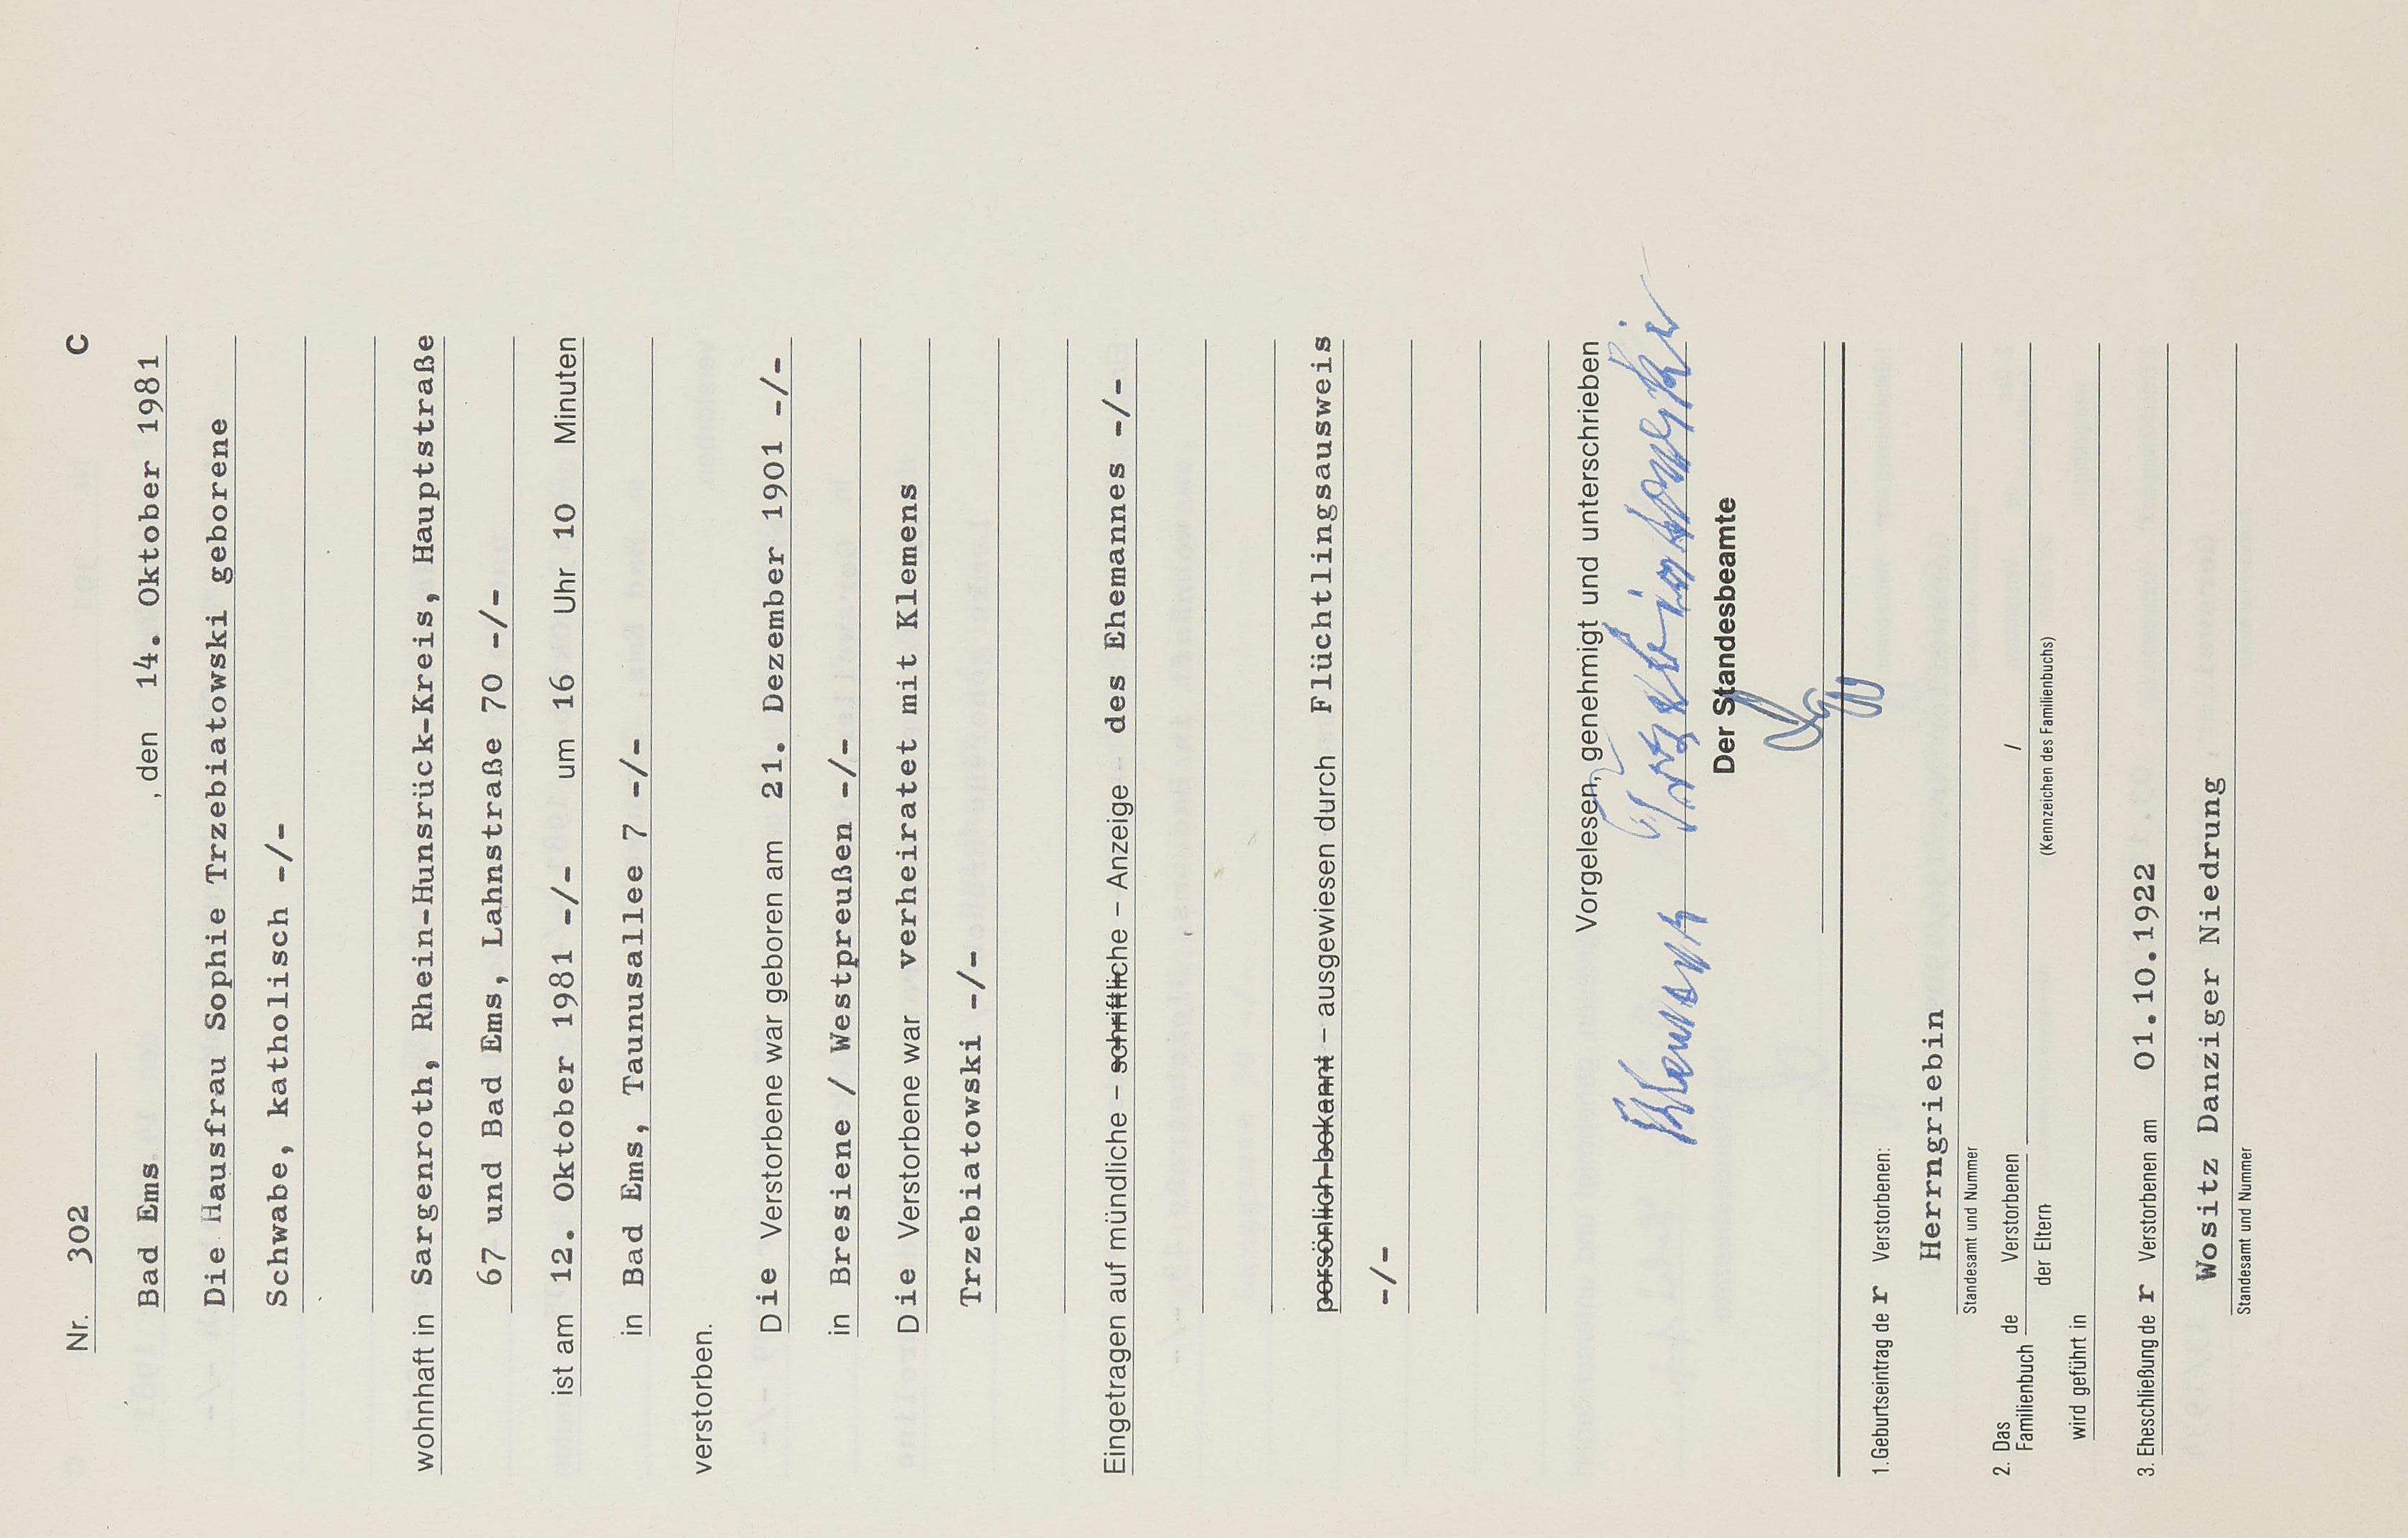 Nr. 302 C
Bad Ems, den 14. Oktober 1981
Die Hausfrau Sophie Trzebiatowski geborene
Schwabe, katholisch -/-
wohnhaft in Sargenroth, Rhein-Hunsrück-Kreis, Hauptstraße
67 und Bad Ems, Lahnstraße 70 -/-
ist am 12. Oktober 1981 -/- um 16 Uhr 10 Minuten
in Bad Ems, Taunusallee 7 -/-
verstorben.
Die Verstorbene war geboren am 21. Dezember 1901 -/-
in Bresiene / Westpreußen -/-
Die Verstorbene war verheiratet mit Klemens
Trzebiatowski -/-
Eingetragen auf mündliche – schriftliche – Anzeige des Ehemannes -/-
persönlich bekannt – ausgewiesen durch Flüchtlingsausweis
-/-
Vorgelesen, genehmigt und unterschrieben
Klemens Trzebiatowski
Der Standesbeamte
1. Geburtseintrag de r Verstorbenen:
Herrngriebin
Standesamt und Nummer
2. Das Familienbuch de Verstorbenen /
der Eltern (Kennzeichen des Familienbuchs)
wird geführt in
3. Eheschließung de r Verstorbenen am 01.10.1922
Wositz Danziger Niedrung
Standesamt und Nummer